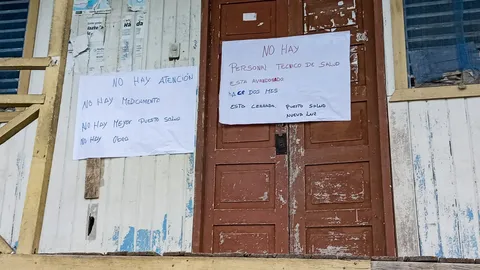 NO HAY ATENCIÓN
NO HAY MEDICAMENTO
NO HAY MEJOR PUESTO SALUD
NO HAY
NO HAY
PERSONAL TECNICO DE SALUD
ESTA ABANDONADO
DOS MES
ESTA CERRADA PUESTO SALUD
NUEVA LUZ